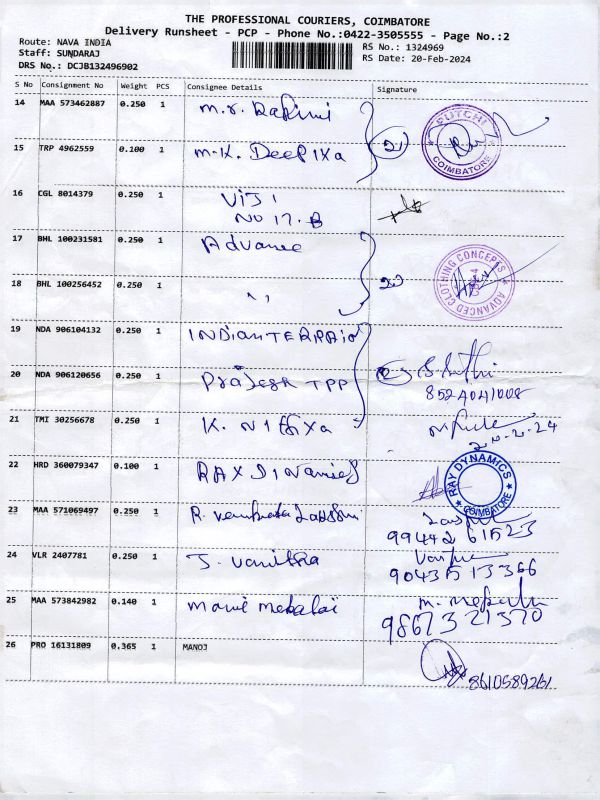 THE PROFESSIONAL COURIERS, COIMBATORE
Delivery Runsheet - PCP - Phone No.:0422-3505555 - Page No.:2
Route: NAVA INDIA
Staff: SUNDARAJ
DRS No.: DCJB132496902
RS No.: 1324969
RS Date: 20-Feb-2024
S No Consignment No Weight PCS Consignee Details Signature
14 MAA 573462887 0.250 1
15 TRP 4962559 0.100 1 M.K. Deepixa
FUTCHI
COIMBATORE
16 CGL 8014379 0.250 1 VIJI
NO 17. B
17 BHL 100231581 0.250 1 Advance
18 BHL 100256452 0.250 1 ,,
ADVANCED CLOTHING CONCEPTS
19 NDA 906104132 0.250 1 INDIANTERRAIN
20 NDA 906120656 0.250 1 TPP
21 TMI 30256678 0.250 1 K.
20.2.24
22 HRD 360079347 0.100 1
RAY DYNAMICS
COIMBATORE
23 MAA 571069497 0.250 1 R.
99442 61523
24 VLR 2407781 0.250 1 J. Vanitha
90435 13366
25 MAA 573842982 0.140 1 Manimekalai
98673 21370
26 PRO 16131809 0.365 1 MANOJ
8610589261